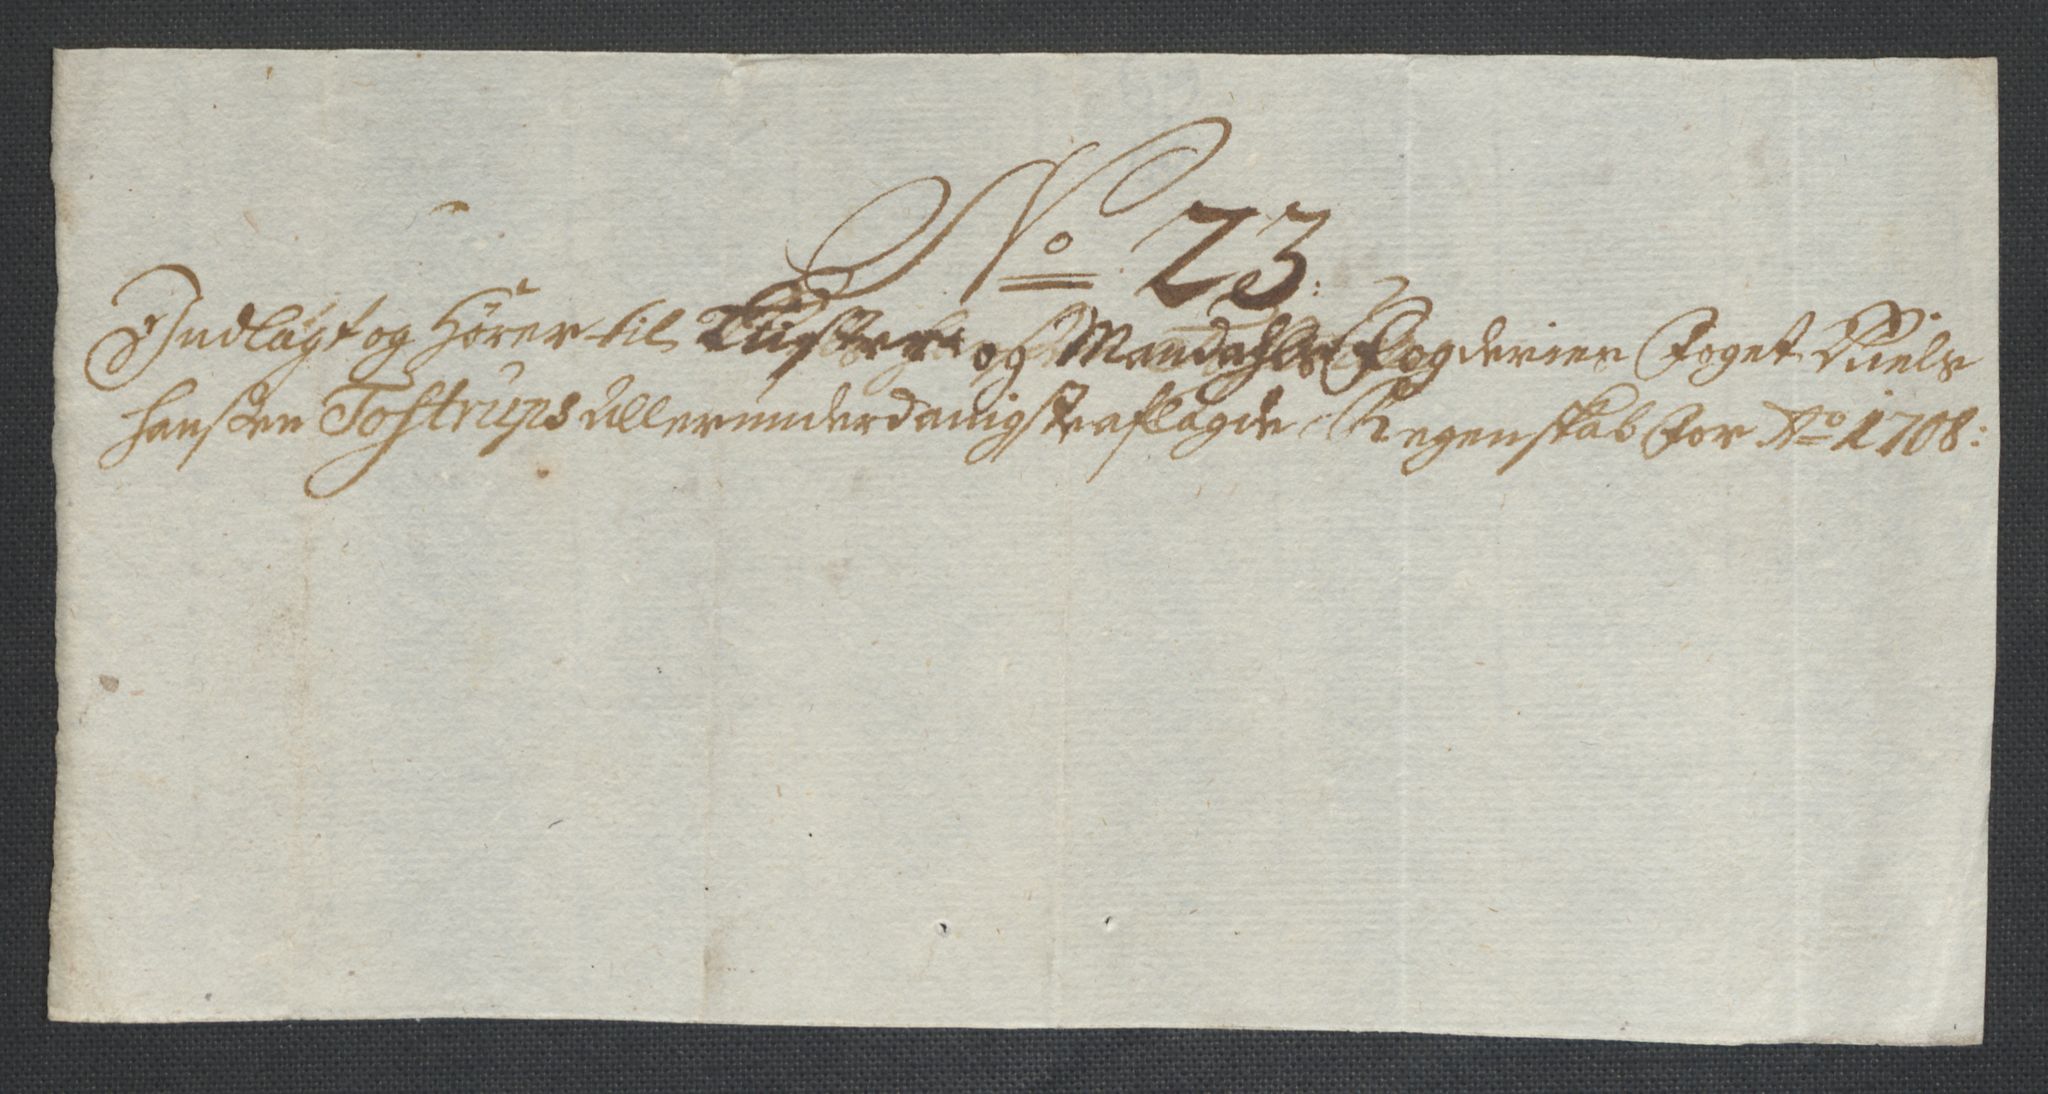 No 23:
Indlagt og Hører til Lister og Mandahls Fogderier Foget Niels
Hansen Tostrups Allerunderdanigste aflagde Regenskab for Ao 1708: